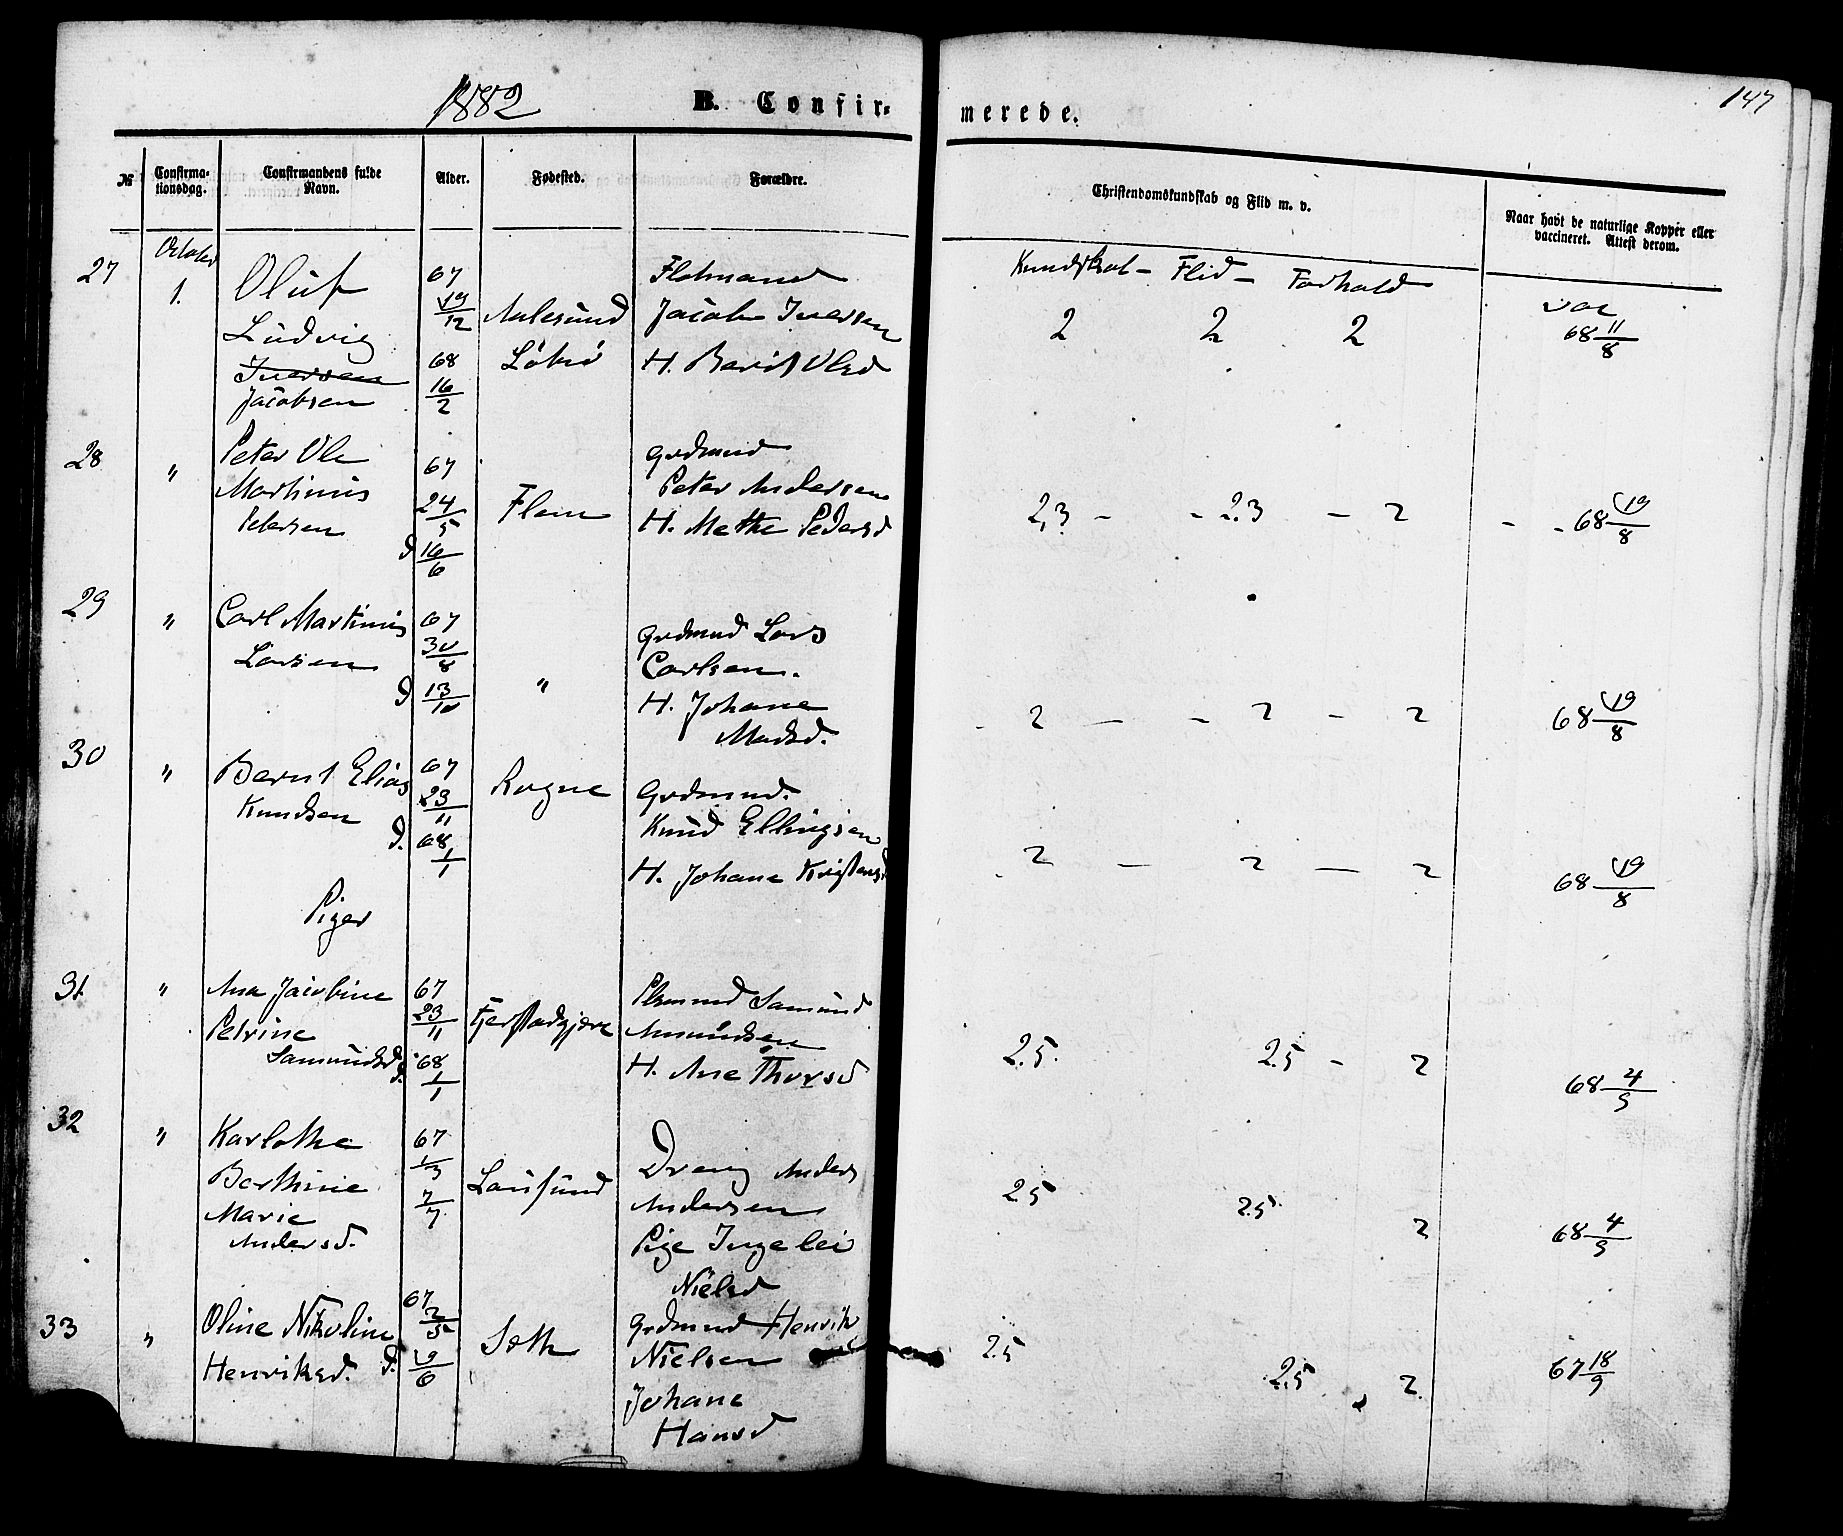 1882 B. Confir-
merede. 147
№ Confirma-tionsdag. Confirmandens fulde Navn. Alder. Fødested. Forældre. Christendomskundskab og Flid m. v. Naar havt de naturlige Kopper eller vaccineret. Attest derom.
Kundskab - Flid - Forhold
27 October 1. Oluf
Ludvig
Iversen
Jacobsen
67 19/12
68 16/2
Aalesund
Flotmand
Jacob Iversen
H. Berit Olsd
2 2 2
vac
68 11/8
28 " Peter Ole
Martinus
Petersen
67
24/5
d 16/6
Flem
Grdmnd
Peter Andersen
H. Methe Pedersd
2,3 - - 2.3 - 2
- - 68 19/8
29 " Carl Martinus
Larsen
67
30/8
d 13/10
"
Grdmnd Lars
Carlsen.
H. Johane
Madsd.
- 2 - - 2 - 2
68 19/8
30 " Bernt Elias
Knudsen
67
23/11
d. 68
1/1
Rogne
Grdmnd.
Knud Ellingsen
H. Johane Kristensd
- 2 - 2 - 2
68 19/8
Piger
31. " Ane Jacobine
Petrine
Samundsd
67
23/11
d. 68
1/1
Fjerstadgjære
Plsmnd Samund
Amundsen
H. Ane Thorsd
2.5. 2.5 - 2
68 4/9
32 " Karlothe
Berthine
Marie
Andersd.
67
1/3
7/7
Lausund
Dreng Anders
Andersen
Pige Ingelei
Nielsd
2.5 2.5. 2
68 4/9
33 " Oline Nikoline
Henriksd.
67
2/5
d. 19/6
Seth
Grdmnd Henrik
Nielsen
Johane
Hansd
2.5 2.5 2.
67 18/9